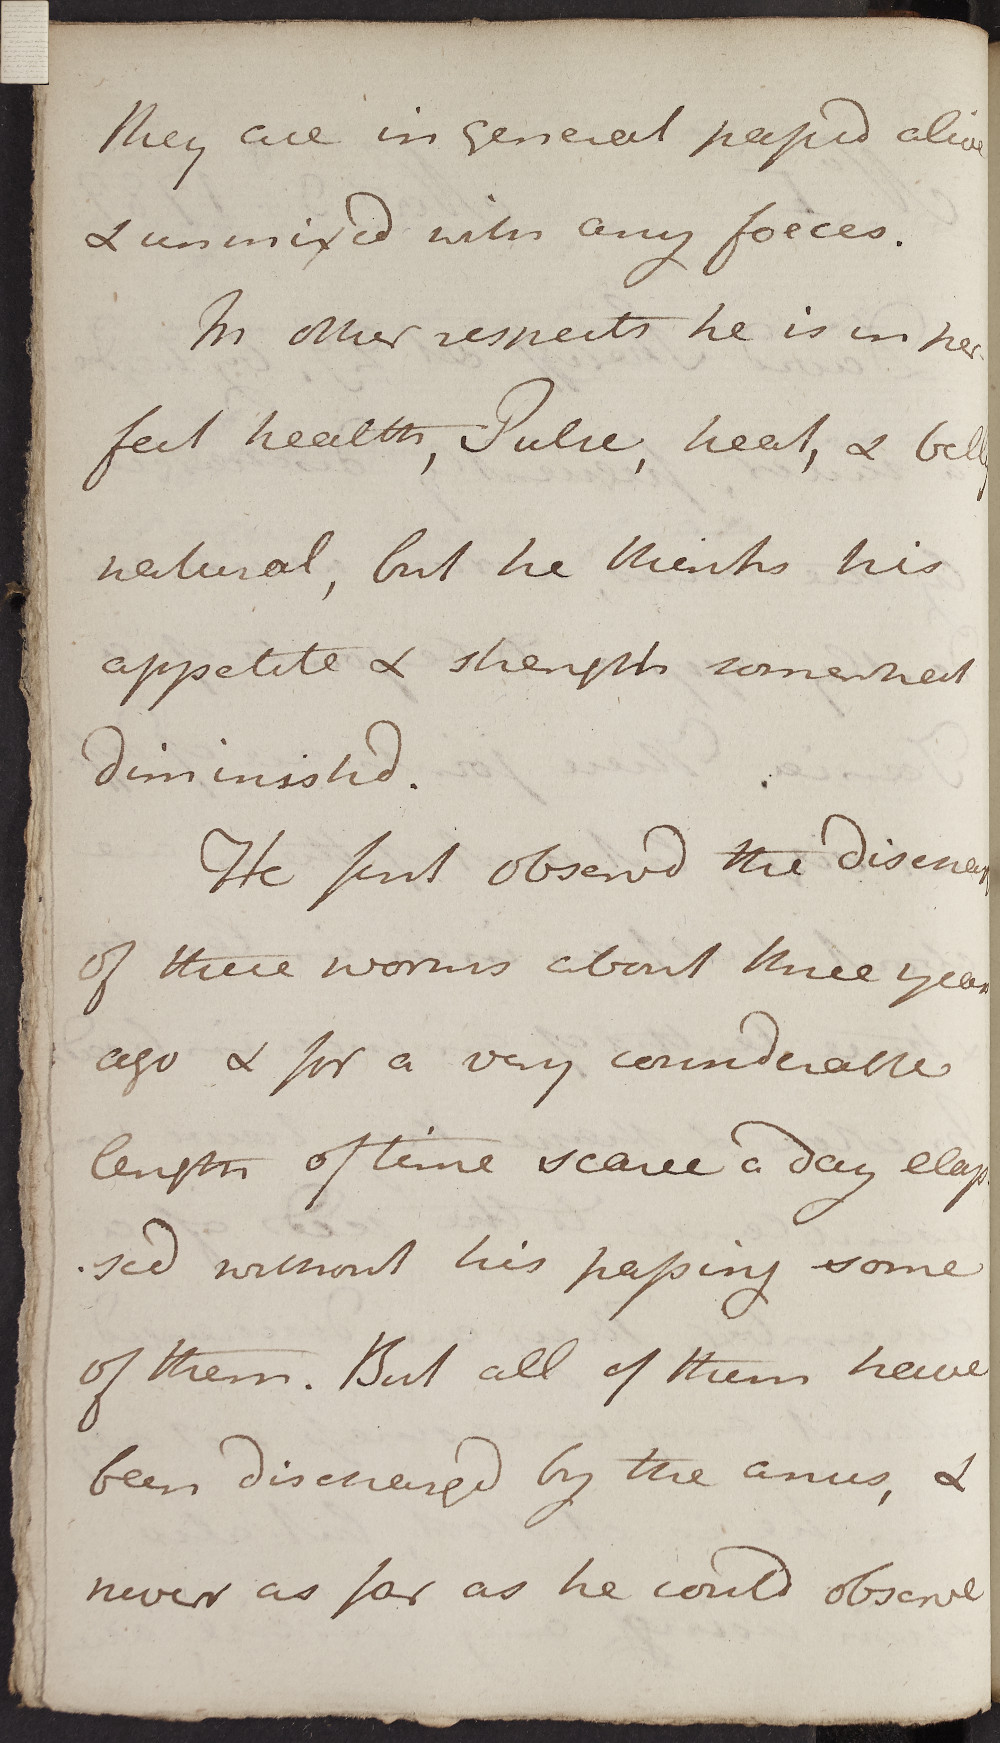 they are in general passd alive
& unmixed with any foeces.
In other respects he is in per-
fect health, Pulse, heat, & belly
natural, but he thinks his
appetite & strength somewhat
diminishd.
He first observd the discharg
of these worms about three years
ago & for a very considerable
length of time scarce a day elap-
-sed without his passing some
of them. But all of them have
been dischargd by the anus, &
never as far as he could observe